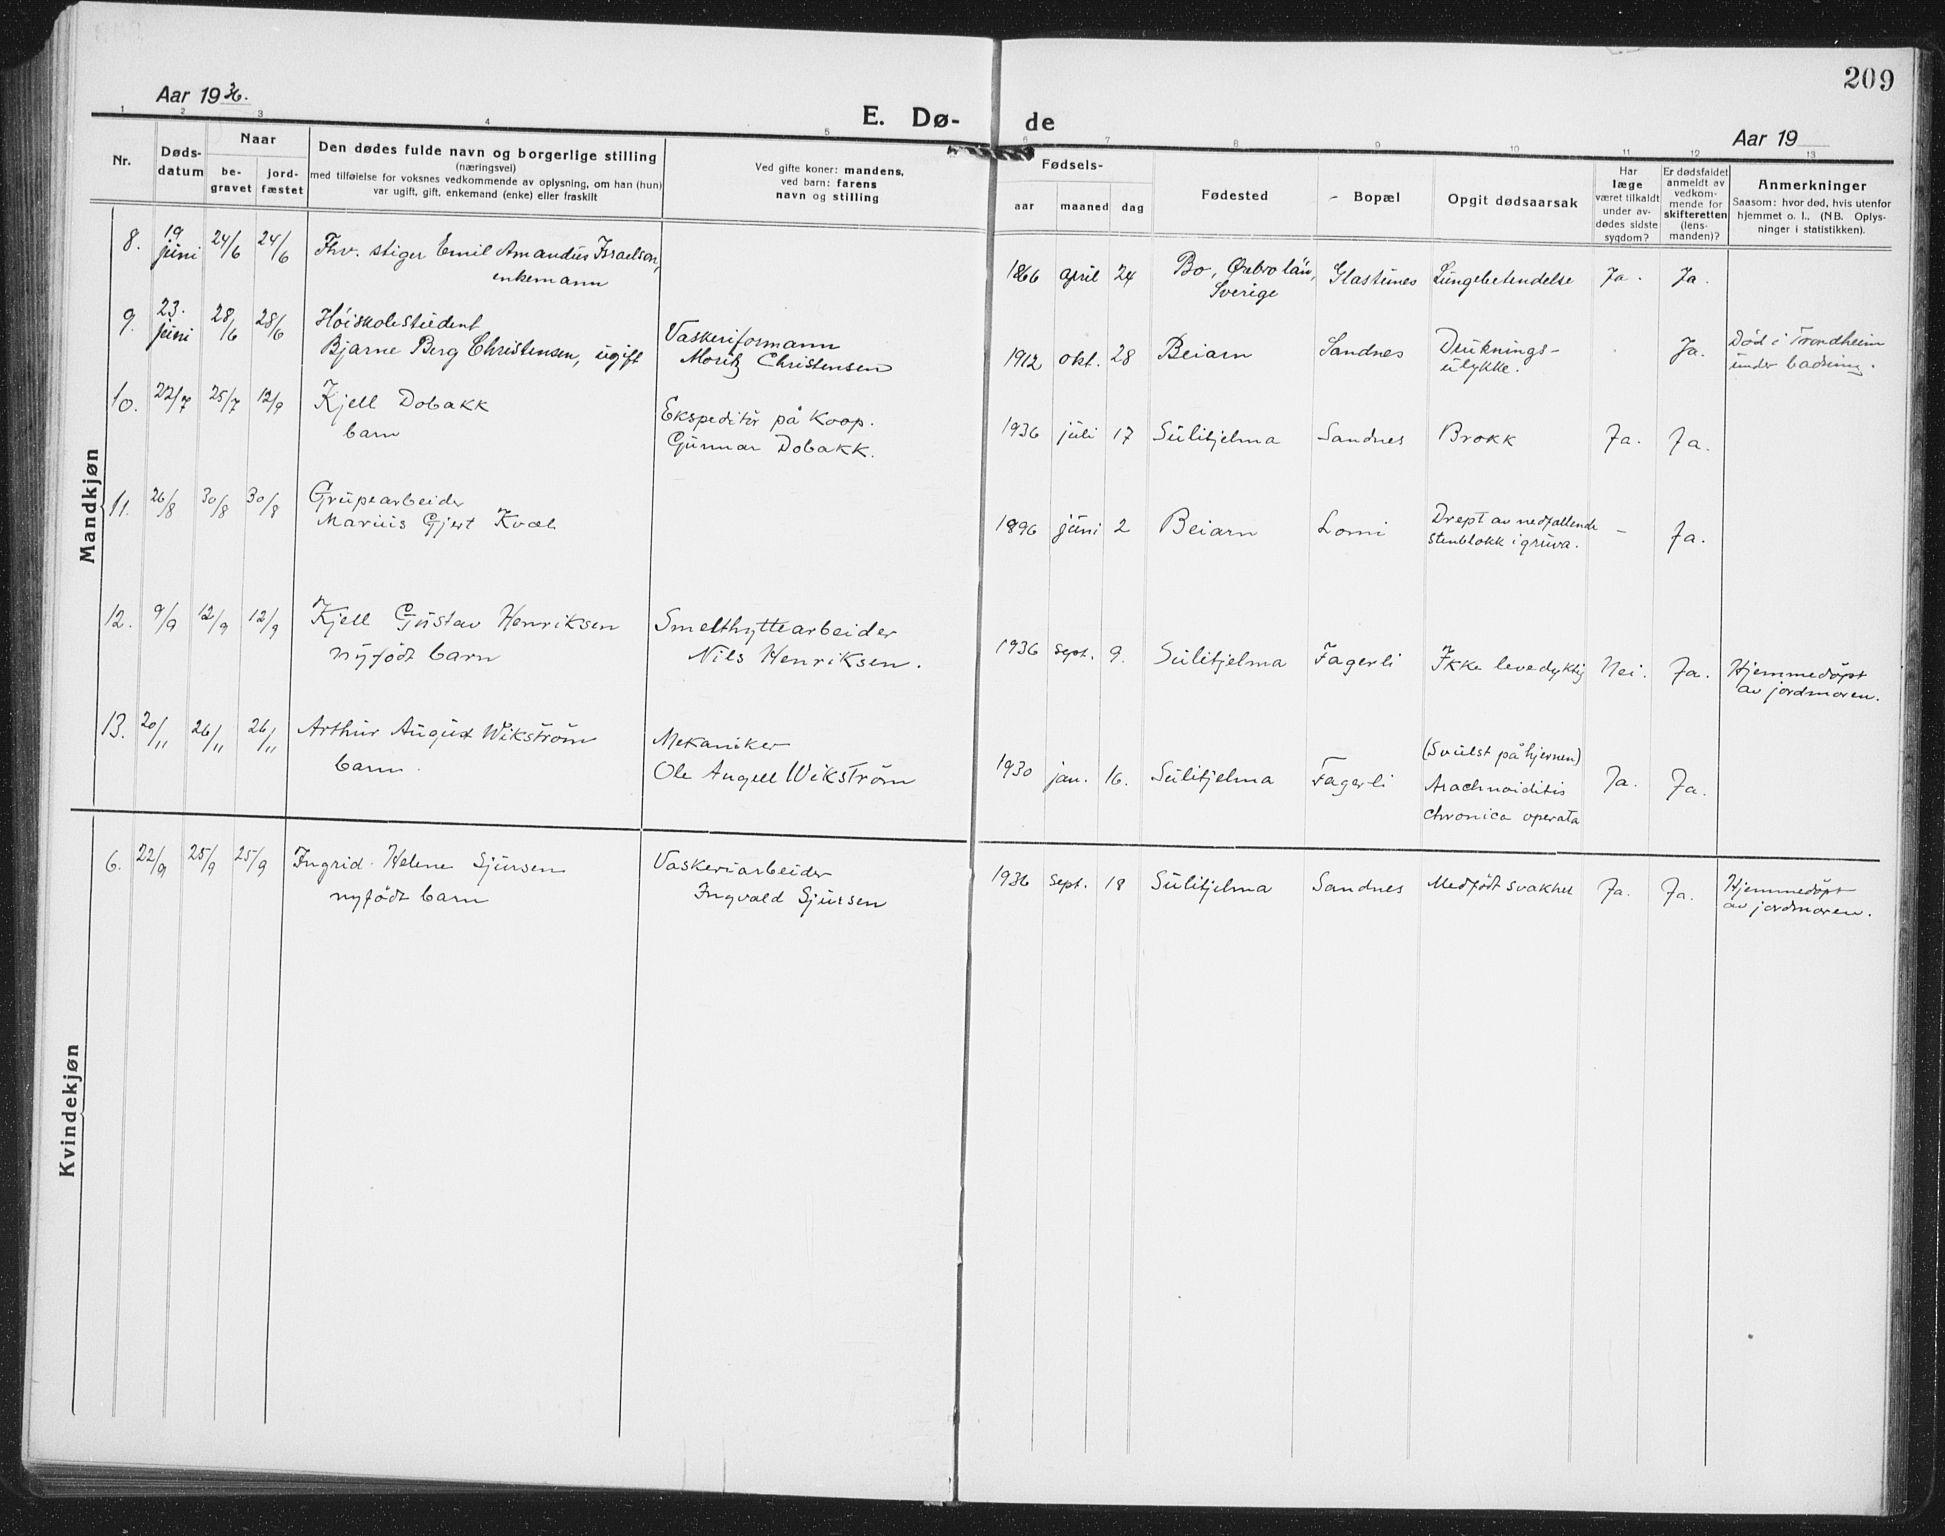 209
Aar 1936.
E. Dø- de
Aar 19
1 2 3 4 5 6 7 8 9 10 11 12 13
Nr.
Døds-
datum
Naar
be-
gravet
jord-
fæstet
Den dødes fulde navn og borgerlige stilling
(næringsvei)
med tilføielse for voksnes vedkommende av oplysning, om han (hun)
var ugift, gift, enkemand (enke) eller fraskilt
Ved gifte koner: mandens,
ved barn: farens
navn og stilling
Fødsels-
aar maaned dag
Fødested
Bopæl
Opgit dødsaarsak
Har
læge
været tilkaldt
under av-
dødes sidste
sygdom?
Er dødsfaldet
anmeldt av
vedkom-
mende for
skifteretten
(lens-
manden)?
Anmerkninger
Saasom: hvor død, hvis utenfor
hjemmet o. l., (NB. Oplys-
ninger i statistikken).
Mandkjøn
8. 19 juni 24/6 24/6 Fhv. stiger Emil Amandus Israelson,
enkemann
1866 april 24 Bo, Ørebro län,
Sverige
Glastunes Lungebetendelse Ja. Ja.
9. 23. juni 28/6 28/6 Höiskolestudent
Bjarne Berg Christensen, ugift
Vaskeriformann
Moritz Christensen
1912 okt. 28 Beiarn Sandnes Druknings-
ulykke.
Ja.
Död i Trondheim
under badning.
10. 22/7 25/7 12/9 Kjell Dobakk
barn
Ekspeditör på Koop.
Gunnar Dobakk.
1936 juli 17 Sulitjelma Sandnes Brokk Ja. Ja.
11. 26/8 30/8 30/8 Grubearbeider
Marius Gjert Kvæl
1896 juni 2 Beiarn Lomi Drept av nedfallende
stenblokk i gruva.
- Ja.
12. 9/9 12/9 12/9 Kjell Gustav Henriksen
nyfödt barn
Smelthyttearbeider
Nils Henriksen.
1936 sept. 9. Sulitjelma Fagerli Ikke levedyktig Nei. Ja. Hjemmedöpt
av jordmoren.
13. 20/11 26/11 26/11 Arthur August Wikström
barn.
Mekaniker
Ole Angell Wikström
1930 jan. 16. Sulitjelma Fagerli (Svulst på hjernen)
Arachnoiditis
chronica operata
Ja. Ja.
Kvindekjøn
6. 22/9 25/9 25/9 Ingrid Helene Sjursen
nyfödt barn
Vaskeriarbeider
Ingvald Sjursen
1936 sept. 18 Sulitjelma Sandnes Medfödt svakhet Ja. Ja. Hjemmedöpt
av jordmoren.